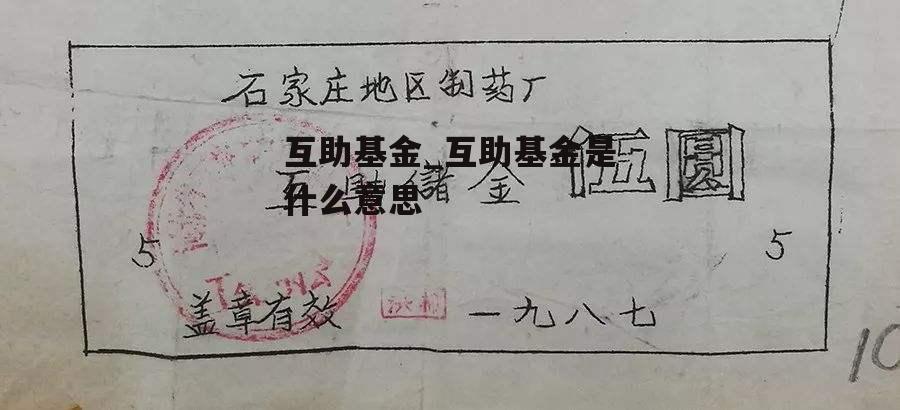 石家庄地区制药厂
互助基金_互助基金是
什么意思
互助储金 伍圆
5 5
盖章有效 一九八七
10